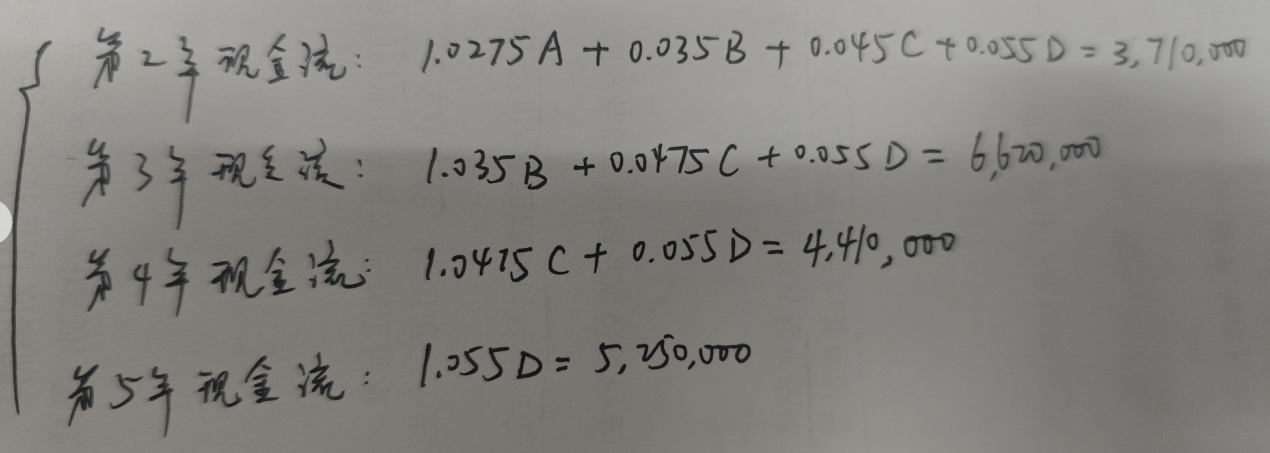 第2年现金流: 1.0275A + 0.035B + 0.045C + 0.055D = 3,710,000
第3年现金流: 1.035B + 0.0475C + 0.055D = 6,620,000
第4年现金流: 1.0475C + 0.055D = 4,410,000
第5年现金流: 1.055D = 5,250,000